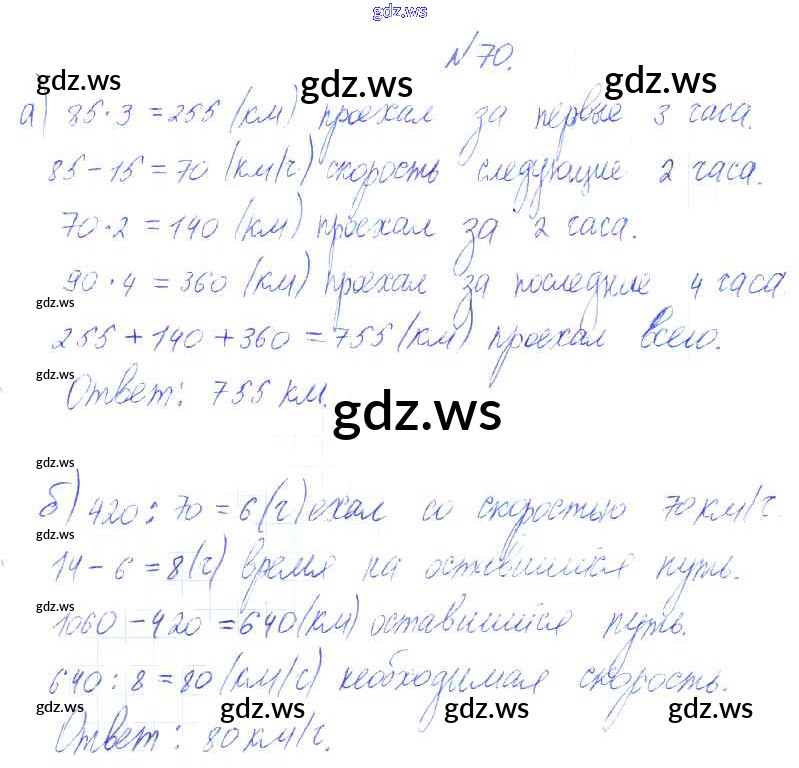 gdz.ws
№70.
gdz.ws gdz.ws gdz.ws
а) 85·3=255 (км) проехал за первые 3 часа.
85-15=70 (км/ч) скорость следующие 2 часа.
70·2=140 (км) проехал за 2 часа.
90·4=360 (км) проехал за последние 4 часа
gdz.ws
255+140+360=755 (км) проехал всего.
gdz.ws
Ответ: 755 км.
gdz.ws
gdz.ws
б) 420:70=6 (ч) ехал со скоростью 70 км/ч.
gdz.ws
14-6=8 (ч) время на оставшийся путь.
gdz.ws
1060-420=640 (км) оставшийся путь.
640:8=80 (км/с) необходимая скорость.
gdz.ws gdz.ws gdz.ws gdz.ws
Ответ: 80 км/ч.